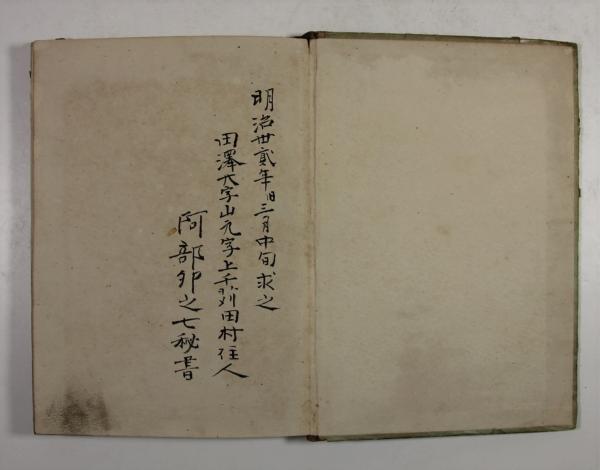 明治廿貳年旧三月中旬求之
田澤大字山元字上千刈田村住人
阿部卯之七秘書